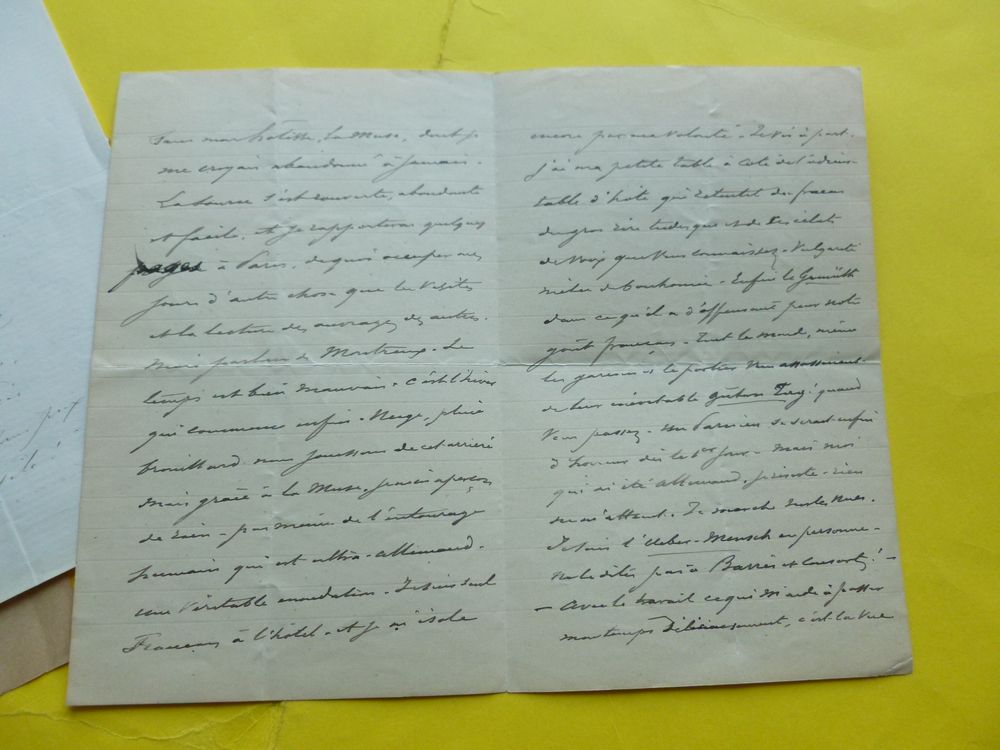 la Muse, dont je
me croyais abandonné à jamais.
La source s'est rouverte, abondante
et facile. Et je rapporterai quelques
pages à Paris. de quoi occuper mes
jours d'autre chose que les visites
et la lecture des ouvrages des autres.
Mais parlons de Montreux. Le
temps est bien mauvais. c'est l'hiver
qui commence enfin. Neige, pluie
brouillard nous jouissons de cet arriéré
mais grâce à la Muse, je ne m'aperçois
de rien. pas même de l'entourage
humain qui est ultra-allemand.
une véritable inondation. Je suis seul
Français à l'hôtel. Et je m'isole
encore par ma volonté. Je vis à part.
j'ai ma petite table à côté de l'
table d'hôte qui retentit du fracas
du gros rire tudesque et de ces éclats
de voix que vous connaissez. Vulgarité
mêlée de bonhomie. Enfin le Gemüth
dans ce qu'il a d'offensant pour notre
goût français. Tout le monde, même
les garçons et le portier vous assassinent
de leur inévitable guten Tag! quand
vous passez. un Parisien se serait enfui
d'horreur dès le 1er jour. Mais moi
qui ai été Allemand, je résiste. rien
ne m'atteint. Je marche sur les nues.
Je suis l'Ueber-Mensch en personne.
ne le dites pas à Barrès et consorts! —
— Avec le travail ce qui m'aide à passer
mon temps délicieusement, c'est la vue